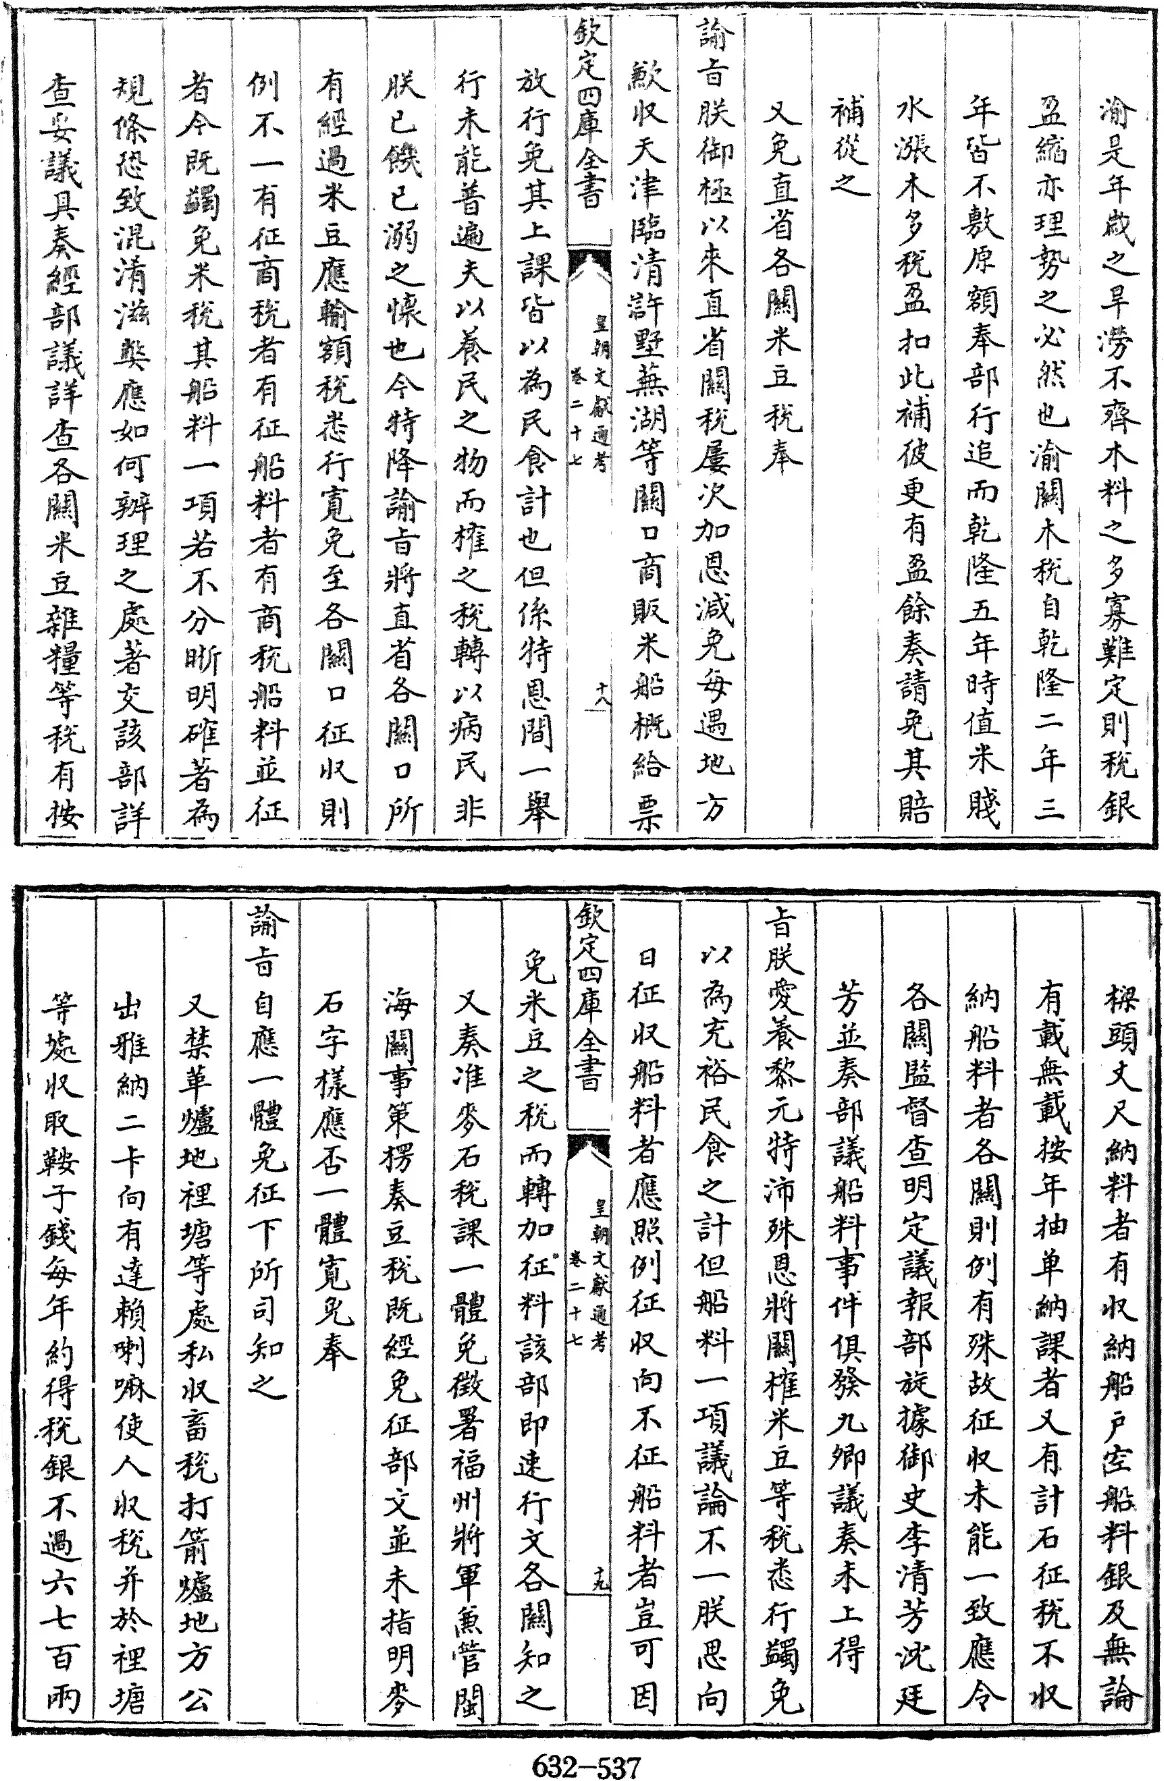 渝是年嵗之旱澇不齊木料之多寡難定則稅銀
盈縮亦理勢之必然也渝關木稅自乾隆二年三
年皆不敷原額奉部行追而乾隆五年時值米賤
水漲木多稅盈扣此補彼更有盈餘奏請免其賠
補從之
又免直省各關米豆稅奉
諭㫖朕御極以來直省關稅屢次加恩減免每遇地方
歉收天津臨清許墅蕪湖等關口商販米船概給票
欽定四庫全書
皇朝文獻通考
卷二十七
十八
放行免其上課皆以為民食計也但係特恩間一舉
行未能普遍夫以養民之物而榷之稅轉以病民非
朕已饑已溺之懷也今特降諭㫖將直省各關口所
有經過米豆應輸額稅悉行寛免至各關口征收則
例不一有征商稅者有征船料者有商稅船料並征
者今既蠲免米稅其船料一項若不分晰明確著為
規條恐致混淆滋弊應如何辦理之處著交該部詳
查妥議具奏經部議詳查各關米豆雜糧等稅有按
樑頭丈尺納料者有收納船戶空船料銀及無論
有載無載按年抽单納課者又有計石征稅不收
納船料者各關則例有殊故征收未能一致應令
各關監督查明定議報部旋據御史李清芳沈廷
芳並奏部議船料事件俱發九卿議奏未上得
㫖朕愛養黎元特沛殊恩將關榷米豆等稅悉行蠲免
以為充裕民食之計但船料一項議論不一朕思向
日征收船料者應照例征收向不征船料者豈可因
欽定四庫全書
皇朝文獻通考
卷二十七
十九
免米豆之稅而轉加征料該部即速行文各關知之
又奏准麥石稅課一體免徵署福州將軍兼管閩
海關事策楞奏豆稅既經免征部文並未指明麥
石字樣應否一體寛免奉
諭㫖自應一體免征下所司知之
又禁革爐地裡塘等處私收畜稅打箭爐地方公
出雅納二卡向有達賴喇嘛使人收稅并於裡塘
等處收取鞍子錢每年約得稅銀不過六七百兩
632-537